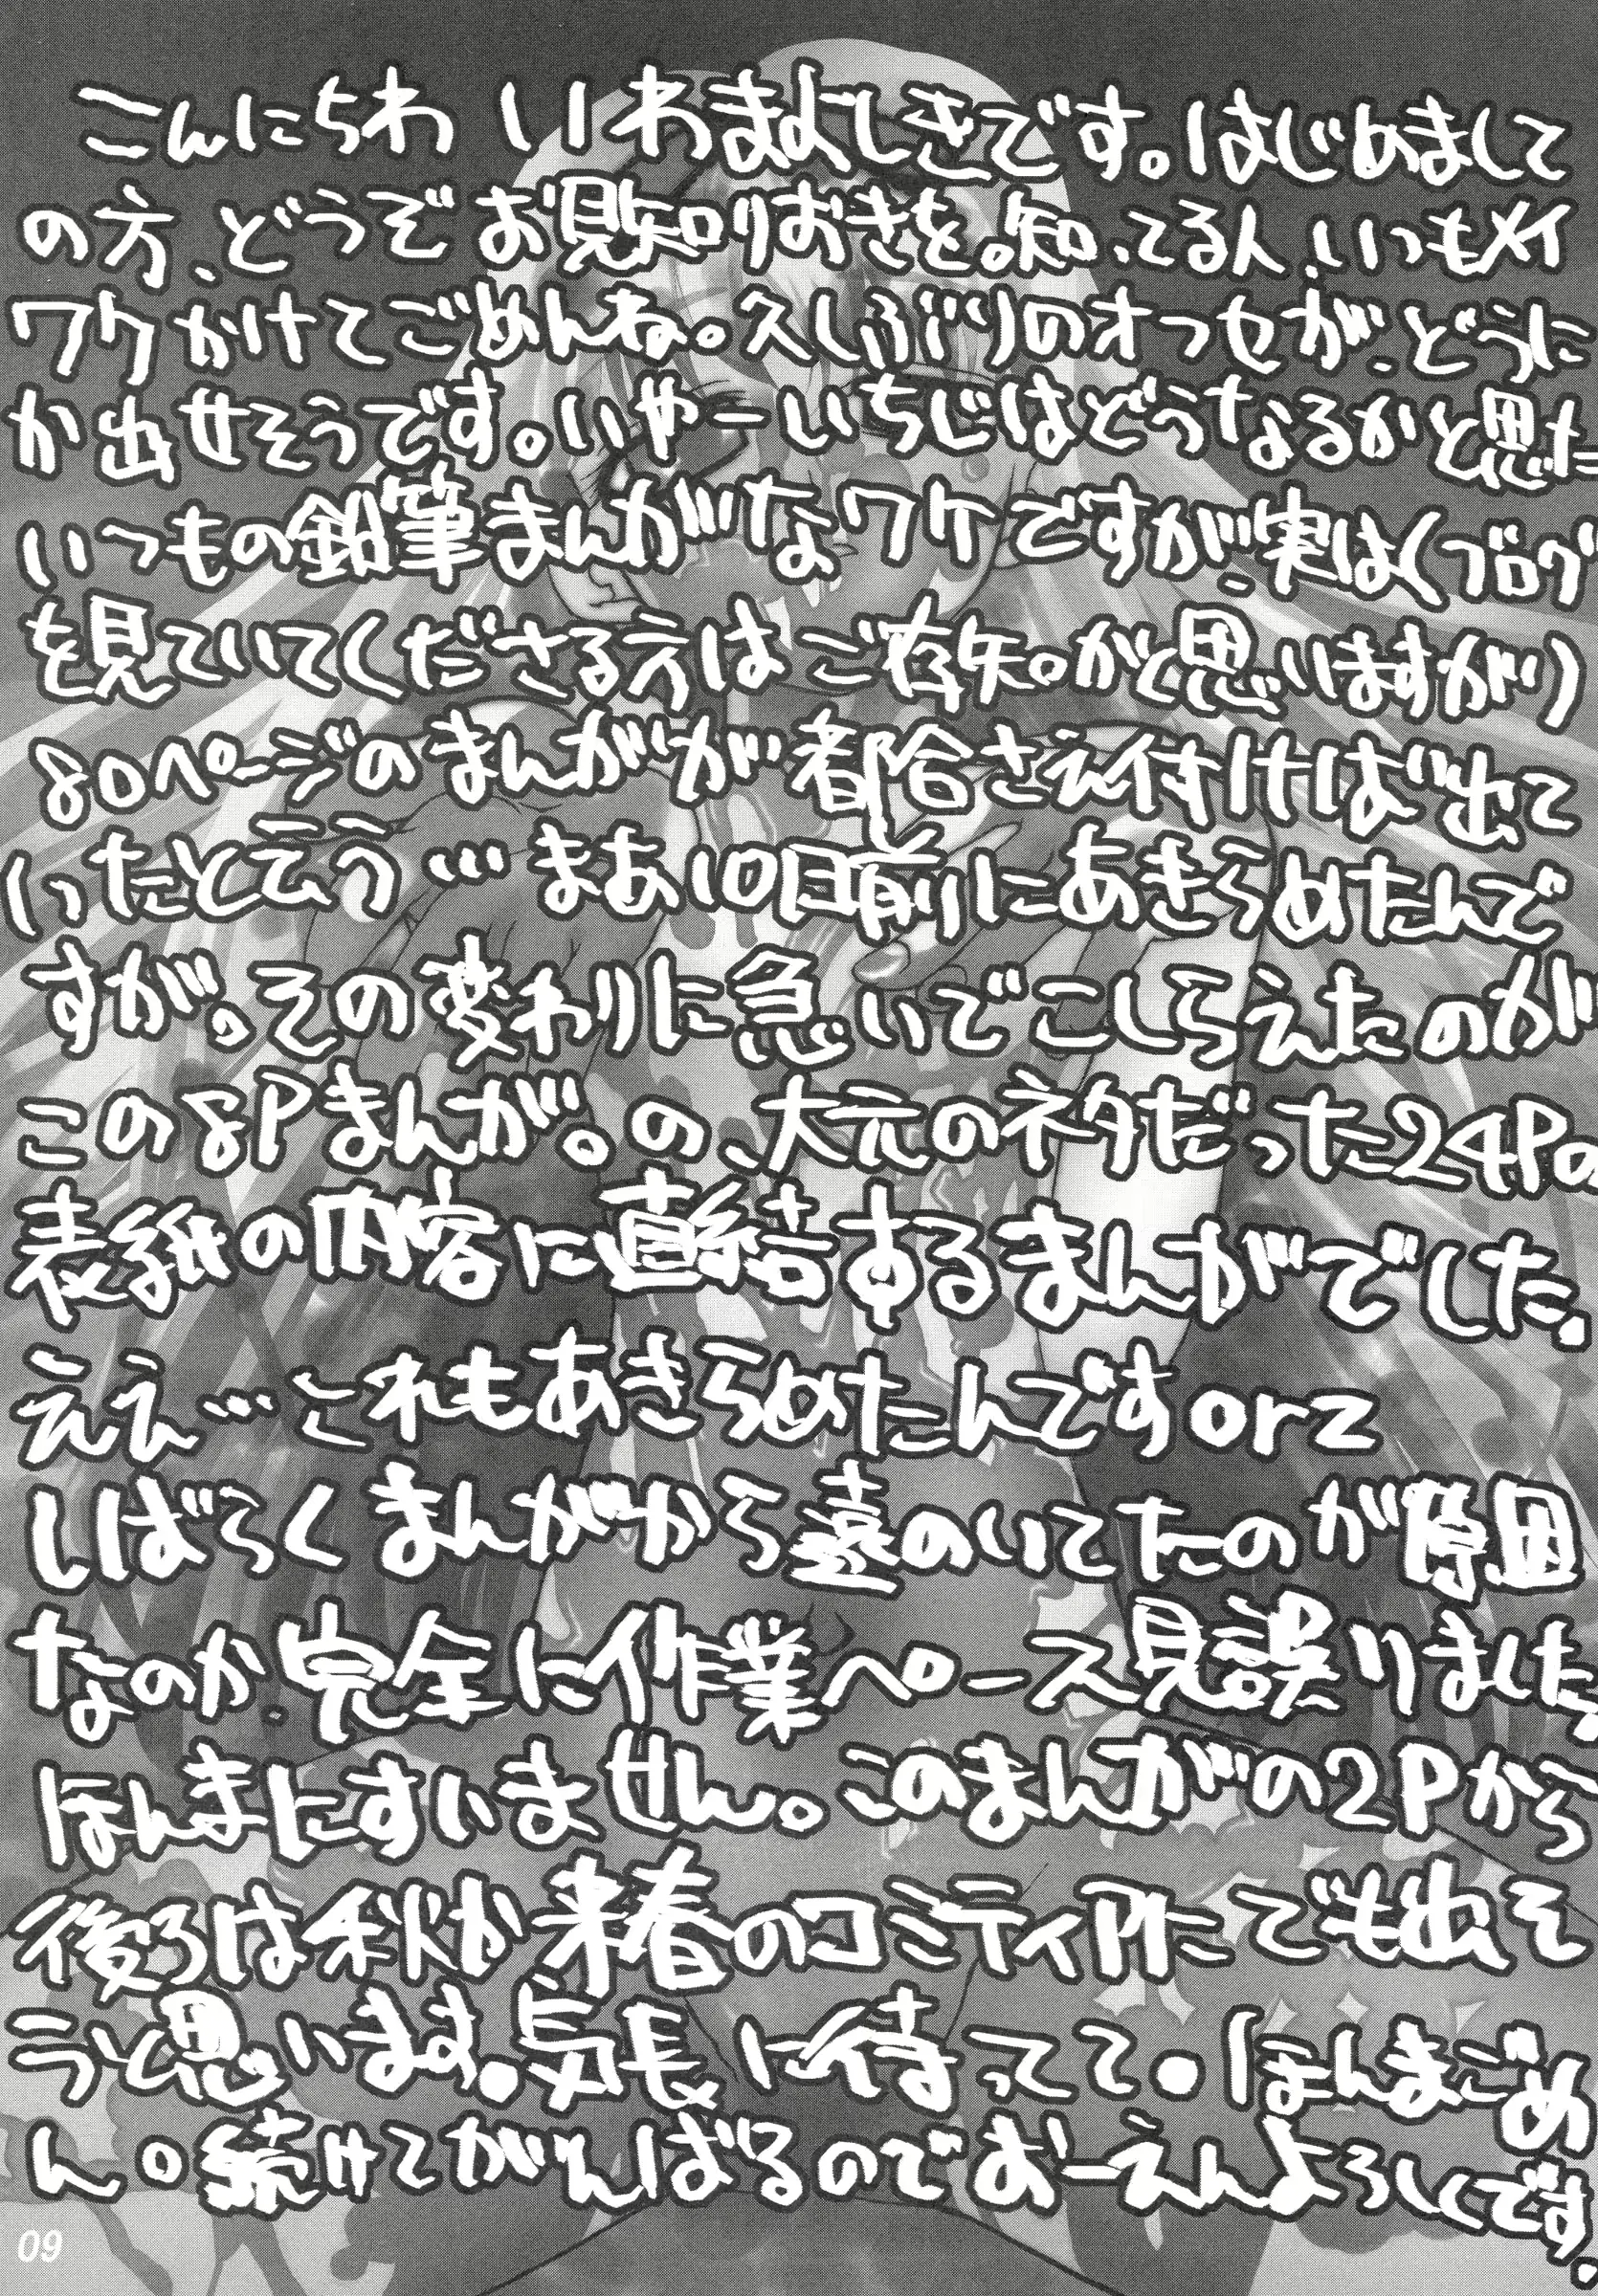 こんにちわ いわまよしきです。はじめまして
の方、どうぞお見知りおきを。知ってる人、いつもメイ
ワクかけてごめんね。久しぶりのオフセが、どうに
か出せそうです。いやーいちじはどうなるかと思た
いつもの鉛筆まんがなワケですが、実は(ブログ
を見ていてくださる方はご存知かと思いますが)
80ページのまんがが都合さえ付けば出て
いったと云う…まあ10日前にあきらめたんで
すが。その変わりに急いでこしらえたのが
この8Pまんが。の、大元のネタだった24Pの
表紙の内容に直結するまんがでした.
ええ…これもあきらめたんですorz
しばらくまんがから遠のいてたのが原因
なのか、完全に作業ペース見誤りました.
ほんまにすいません。このまんがの2Pから
後ろは秋か来春のコミティアにでも出そ
うと思います.気長に待ってて.ほんまごめ
ん。続けてがんばるのでおーえんよろしくです.
09